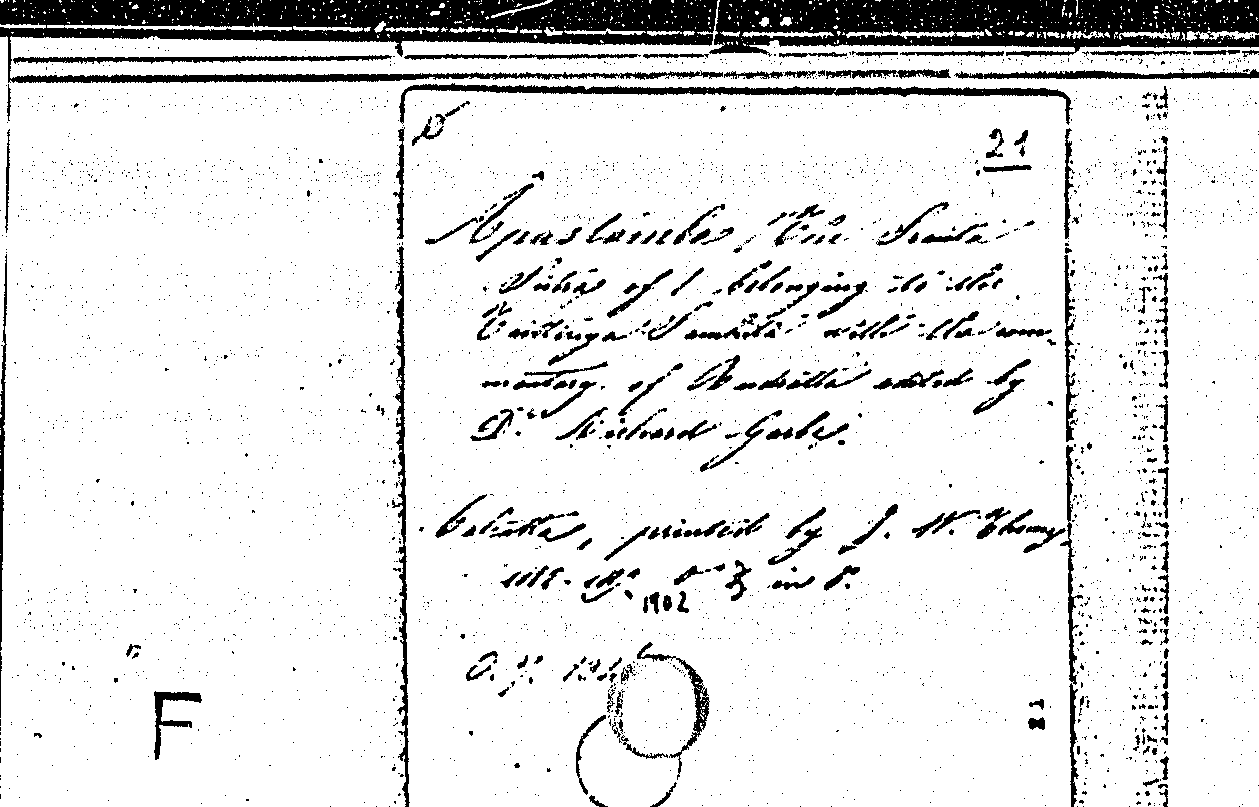 21
Apastamba, The Srauta
Sutra of belonging to the
Taittiriya Samhita with the com-
mentary of Rudratta edited by
Dr. Richard Garbe.
Calcutta, printed by J. W. Thomas,
1902
in 8°.
O. 7.
21
F